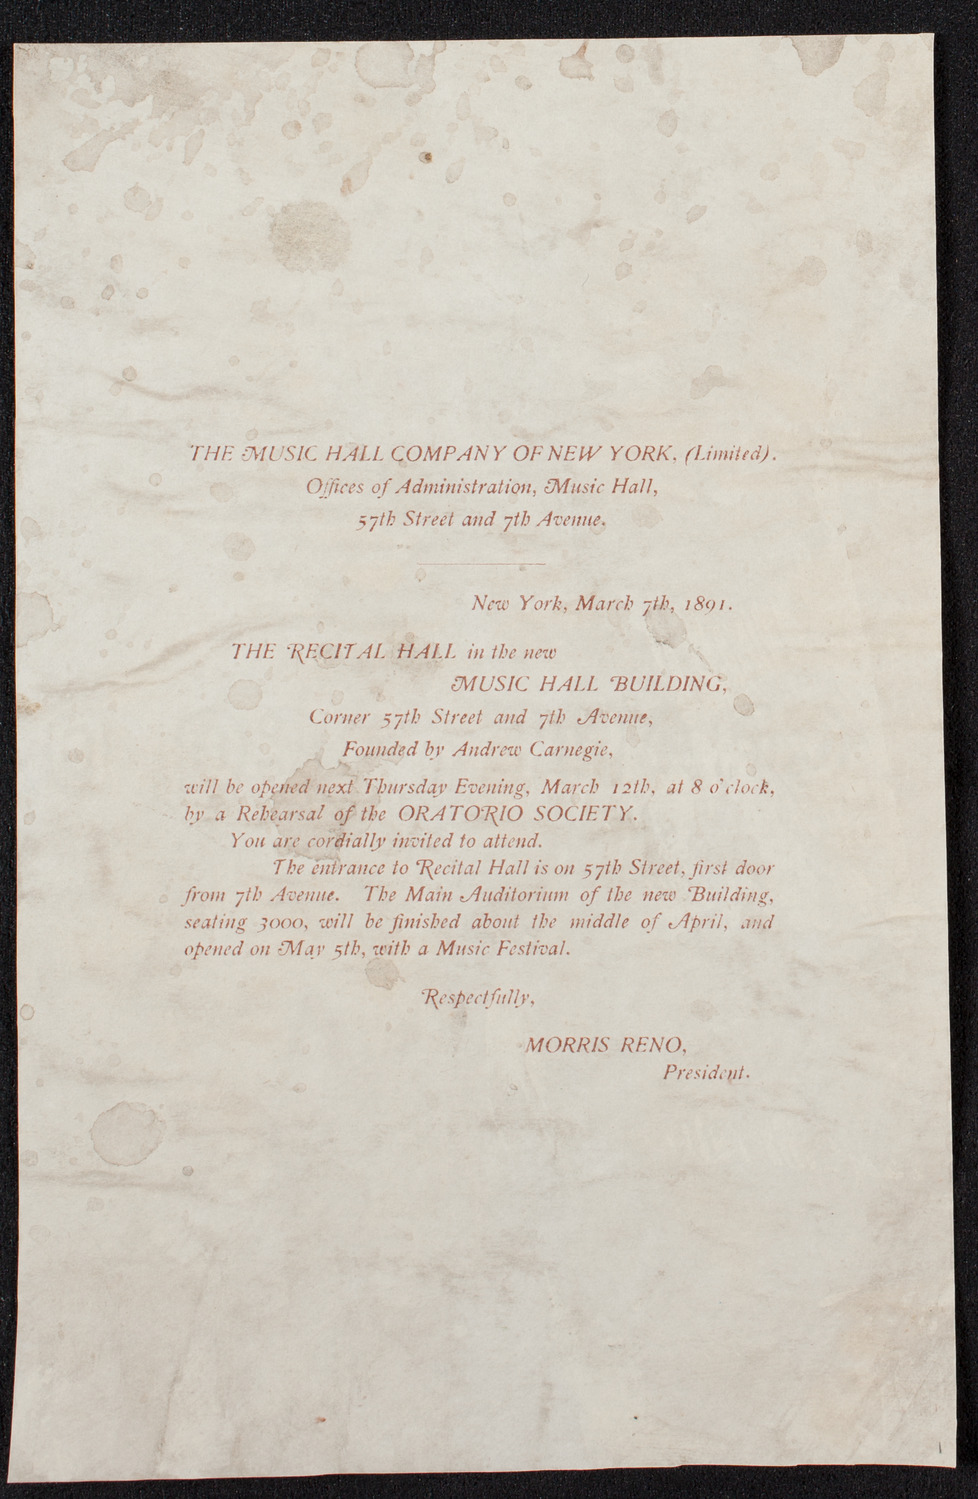 THE MUSIC HALL COMPANY OF NEW YORK, (Limited).
Offices of Administration, Music Hall,
57th Street and 7th Avenue.
New York, March 7th, 1891.
THE RECITAL HALL in the new
MUSIC HALL BUILDING,
Corner 57th Street and 7th Avenue,
Founded by Andrew Carnegie,
will be opened next Thursday Evening, March 12th, at 8 o'clock,
by a Rehearsal of the ORATORIO SOCIETY.
You are cordially invited to attend.
The entrance to Recital Hall is on 57th Street, first door
from 7th Avenue. The Main Auditorium of the new Building,
seating 3000, will be finished about the middle of April, and
opened on May 5th, with a Music Festival.
Respectfully,
MORRIS RENO,
President.